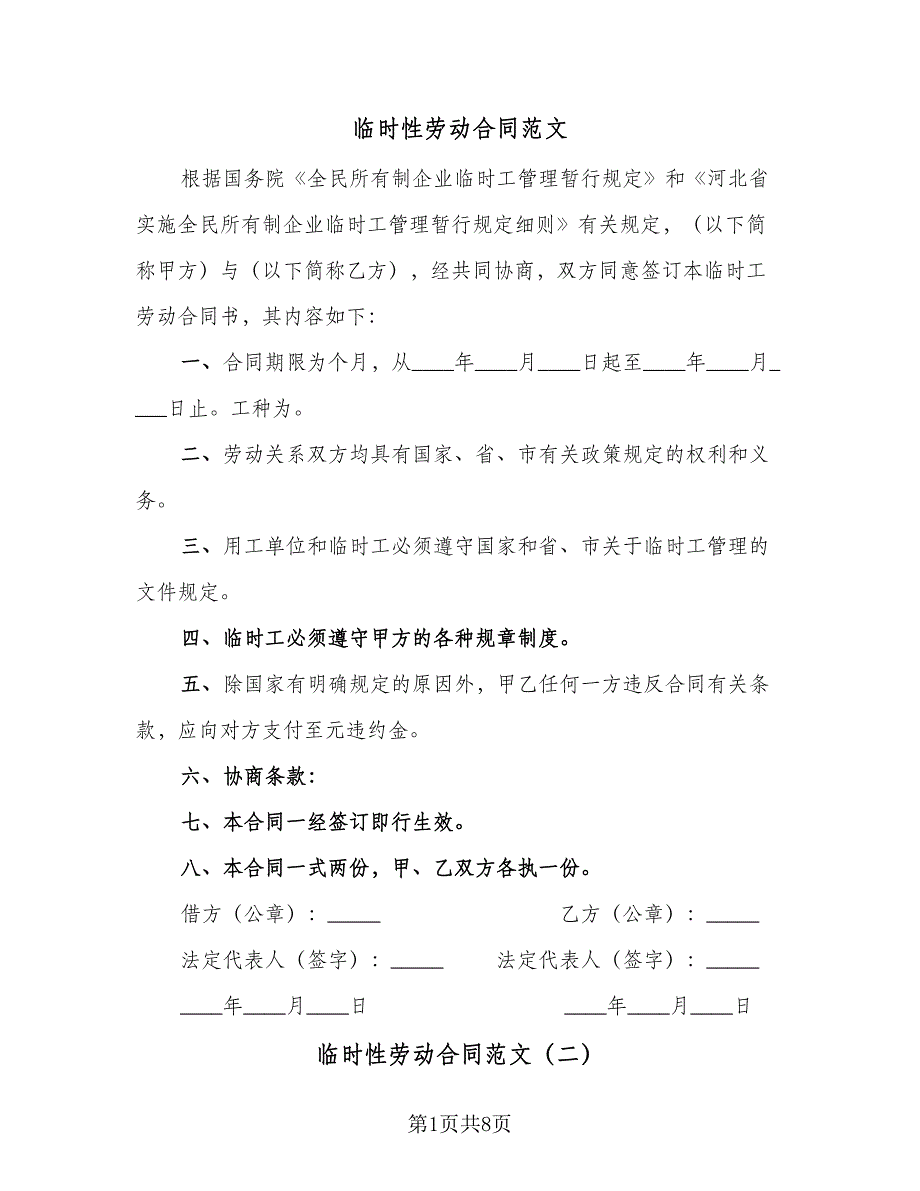 临时性劳动合同范文
根据国务院《全民所有制企业临时工管理暂行规定》和《河北省
实施全民所有制企业临时工管理暂行规定细则》有关规定，（以下简
称甲方）与（以下简称乙方），经共同协商，双方同意签订本临时工
劳动合同书，其内容如下：
一、合同期限为个月，从____年____月____日起至____年____月_
___日止。工种为。
二、劳动关系双方均具有国家、省、市有关政策规定的权利和义
务。
三、用工单位和临时工必须遵守国家和省、市关于临时工管理的
文件规定。
四、临时工必须遵守甲方的各种规章制度。
五、除国家有明确规定的原因外，甲乙任何一方违反合同有关条
款，应向对方支付至元违约金。
六、协商条款：
七、本合同一经签订即行生效。
八、本合同一式两份，甲、乙双方各执一份。
借方（公章）：_____ 乙方（公章）：_____
法定代表人（签字）：_____ 法定代表人（签字）：_____
____年____月____日 ____年____月____日
临时性劳动合同范文（二）
第1页共8页